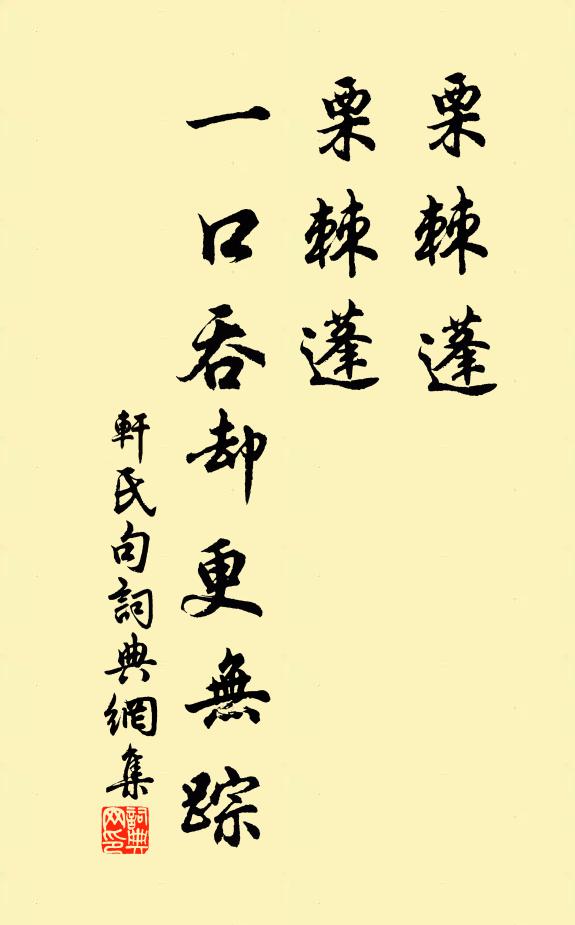 栗棘蓬
栗棘蓬
一口吞却更無踪
軒氏句詞典網集
詞典网印